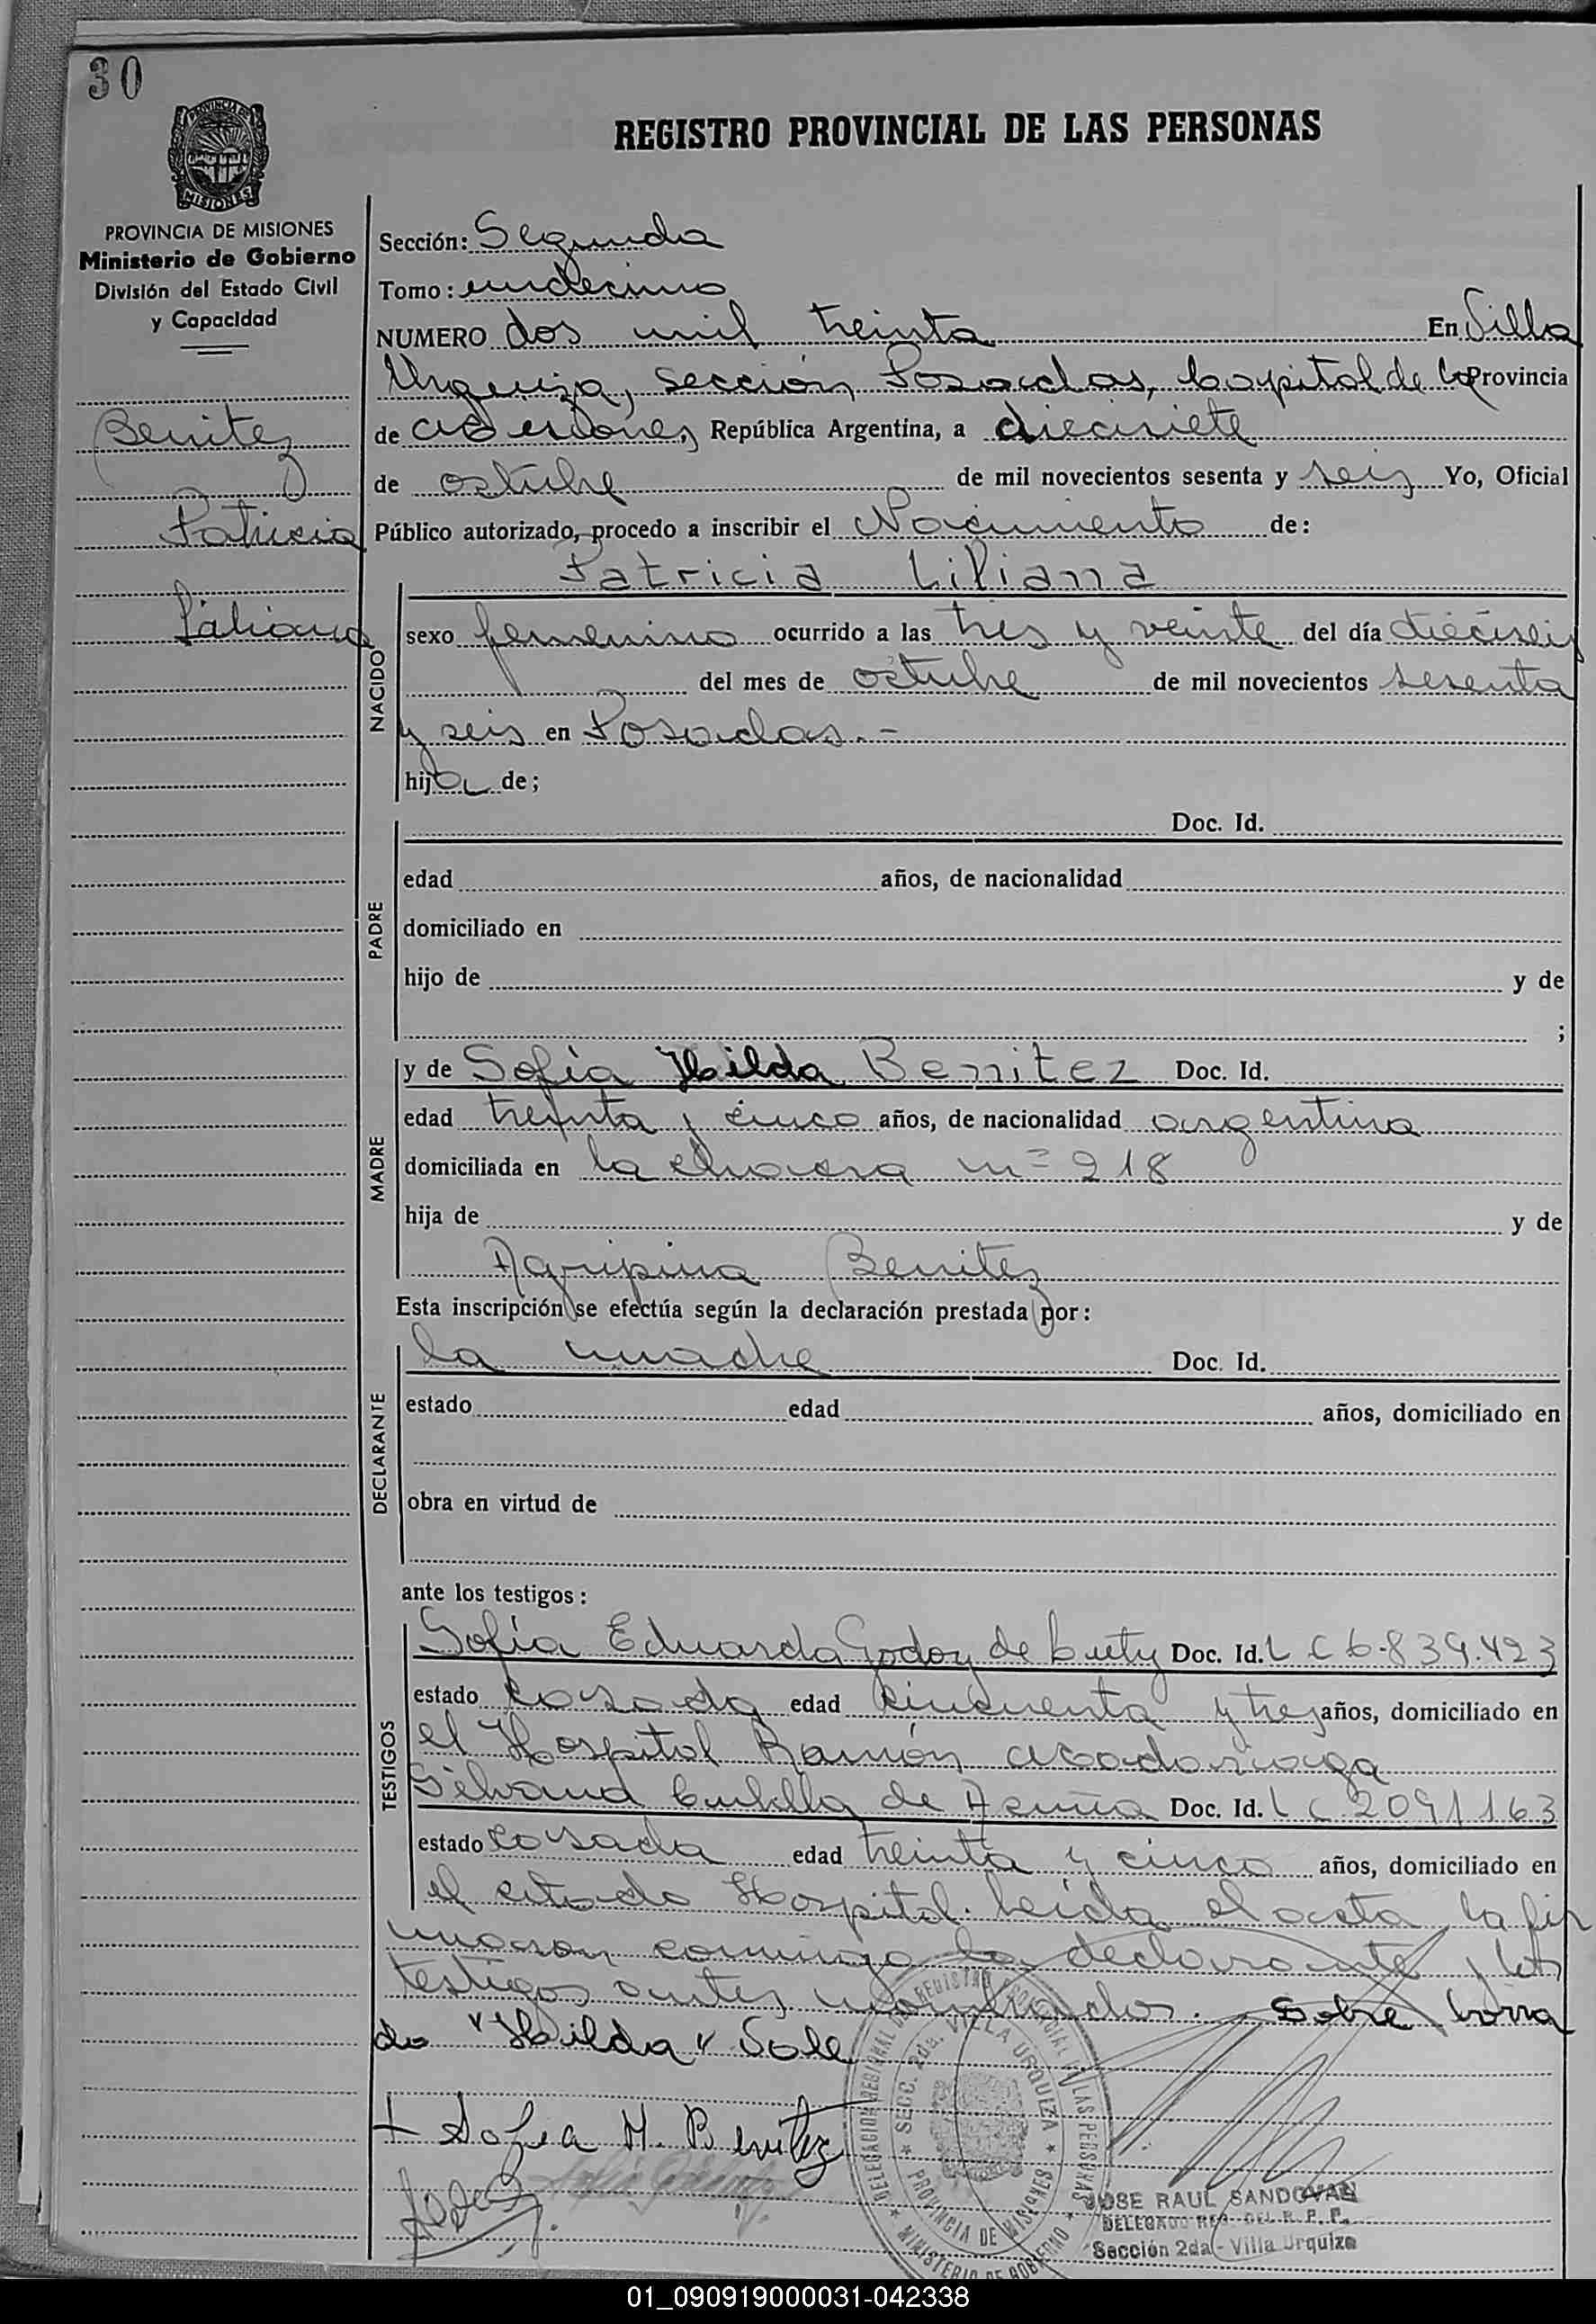 30
PROVINCIA DE
MISIONES
REGISTRO PROVINCIAL DE LAS PERSONAS
PROVINCIA DE MISIONES
Ministerio de Gobierno
División del Estado Civil
y Capacidad
Benitez
Patricia
Liliana
Sección: Segunda
Tomo: undecimo
NUMERO dos mil treinta En Villa
Urquiza, sección Posadas, Capital de la Provincia
de Misiones, República Argentina, a diecisiete
de octubre de mil novecientos sesenta y seis Yo, Oficial
Público autorizado, procedo a inscribir el Nacimiento de:
NACIDO
Patricia Liliana
sexo femenino ocurrido a las tres y veinte del día dieciseis
del mes de octubre de mil novecientos sesenta
y seis en Posadas.-
hija de;
PADRE
Doc. Id.
edad años, de nacionalidad
domiciliado en
hijo de y de
;
MADRE
y de Sofía Hilda Benitez Doc. Id.
edad treinta y cinco años, de nacionalidad argentina
domiciliada en la chacra nº 218
hija de y de
Agripina Benitez
Esta inscripción se efectúa según la declaración prestada por:
DECLARANTE
la madre Doc. Id.
estado edad años, domiciliado en
obra en virtud de
ante los testigos:
TESTIGOS
Sofía Eduarda Godoy de Doc. Id. L C 6.839.423
estado casada edad cincuenta y tres años, domiciliado en
el Hospital Ramón Madariaga
Silvana de Acuña Doc. Id. L C 2091163
estado casada edad treinta y cinco años, domiciliado en
el citado Hospital. Leída el acta, la fir
maron conmigo la declarante y los
testigos antes nombrados. Sobre borra
do "Hilda" Vale
+ Sofia H. Benitez
DELEGACION REGIONAL DEL REGISTRO PROVINCIAL DE LAS PERSONAS
SECC. 2da. VILLA URQUIZA
PROVINCIA DE MISIONES
MINISTERIO DE GOBIERNO
JOSE RAUL SANDOVAL
DELEGADO REG. DEL R. P. P.
Sección 2da - Villa Urquiza
01_090919000031-042338